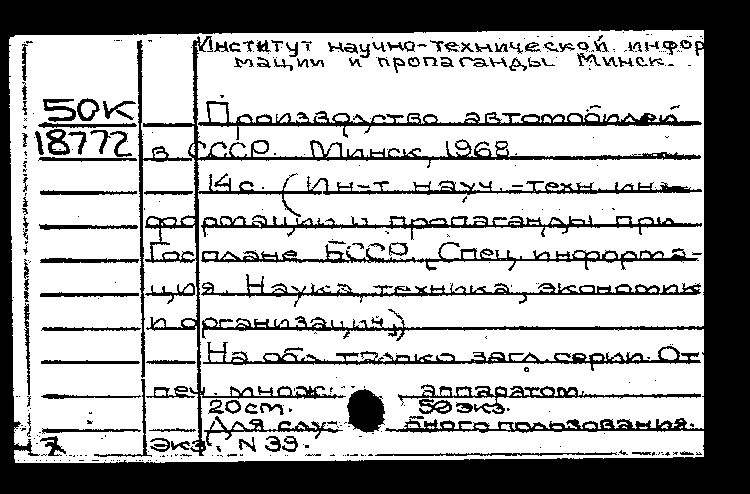 Институт научно-технической инфор
мации и пропаганды Минск.
50К Производство автомобилей
18772 в СССР. Минск, 1968.
14с. (Ин-т науч.-техн. ин-
формации и пропаганды при
Госплане БССР. Спец. информа-
ция. Наука, техника, экономик
и организация.)
На обл. только загл. серии. От
печ. множ. аппаратом.
20 ст. 50 экз.
Для служ бного пользования.
экз. N 39.